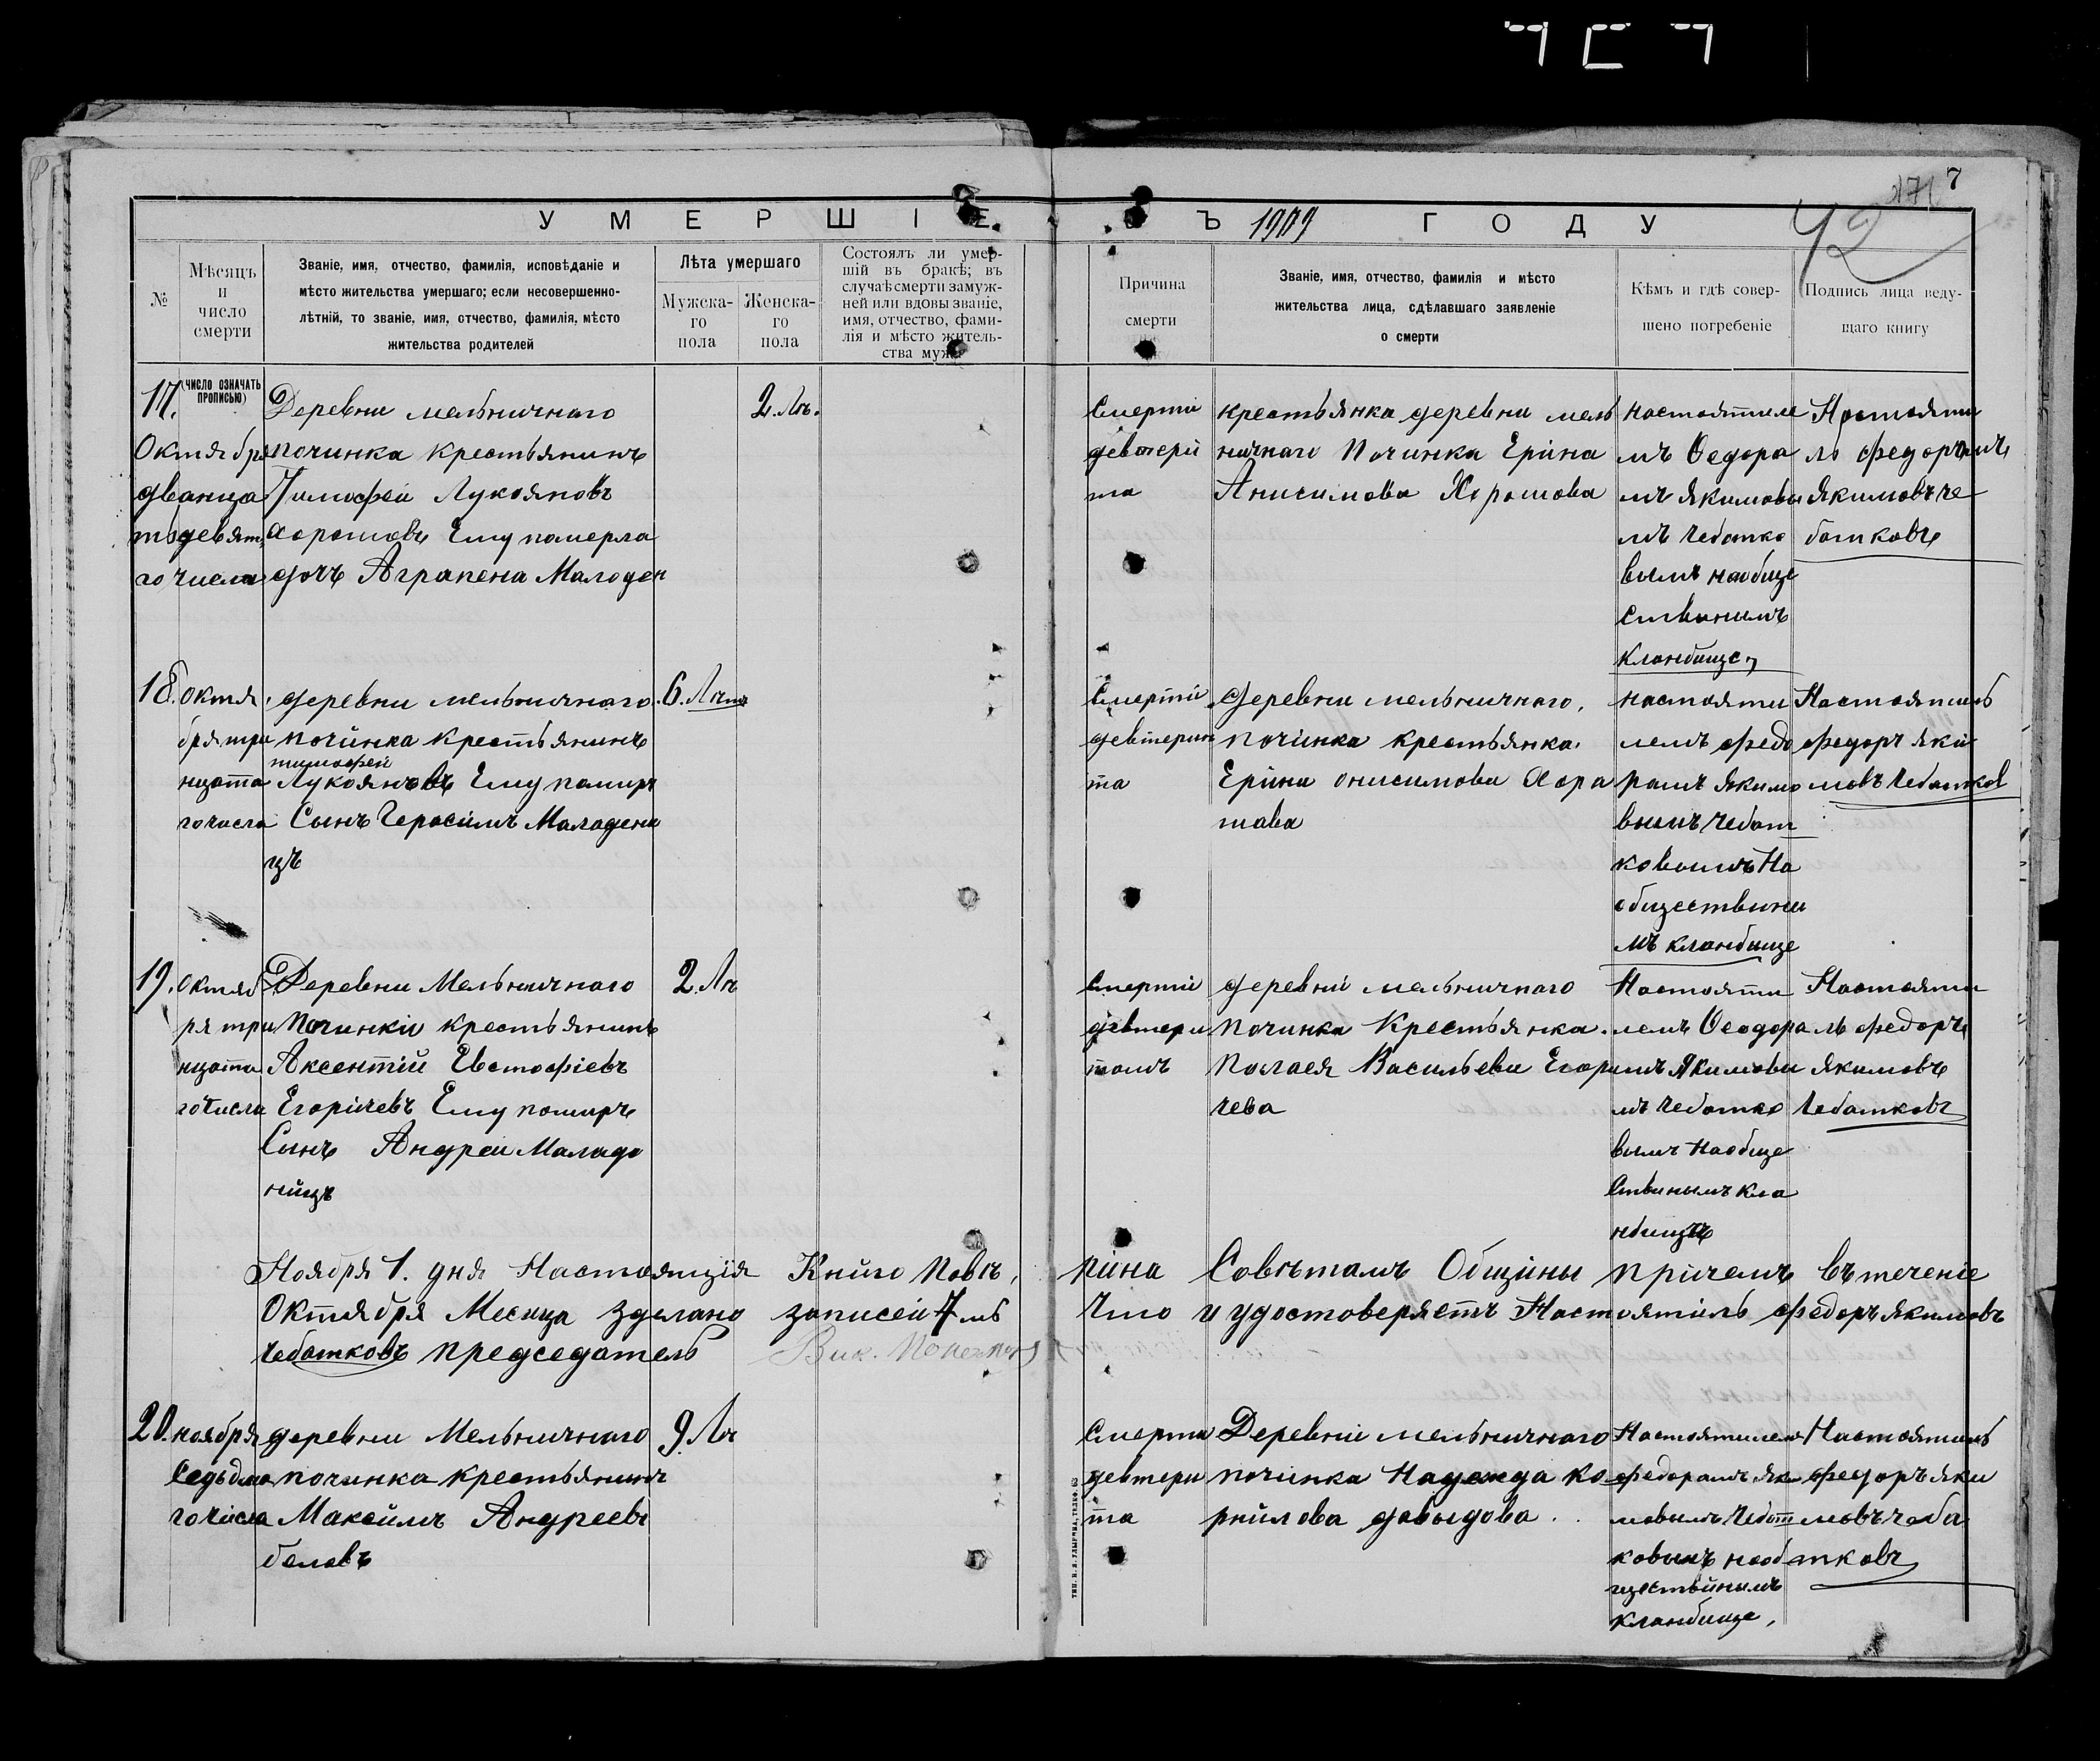 171 7
42
УМЕРШІЕ ВЪ 1909 ГОДУ
№
Мѣсяцъ
и
число
смерти
Званіе, имя, отчество, фамилія, исповѣданіе и
мѣсто жительства умершаго; если несовершенно-
лѣтній, то званіе, имя, отчество, фамилія, мѣсто
жительства родителей
Лѣта умершаго
Мужска-
го
пола
Женска-
го
пола
Состоялъ ли умер-
шій въ бракѣ; въ
случаѣ смерти замуж-
ней или вдовы званіе,
имя, отчество, фами-
лія и мѣсто житель-
ства мужа
Причина
смерти
Званіе, имя, отчество, фамилія и мѣсто
жительства лица, сдѣлавшаго заявленіе
о смерти
Кѣмъ и гдѣ совер-
шено погребеніе
Подпись лица веду-
щаго книгу
17.
(ЧИСЛО ОЗНАЧАТЬ
ПРОПИСЬЮ)
Октября
дванца
тьдевят
го числа
Деревни мельничнаго
починка крестьянинъ
Тимофей Лукояновъ
хорошовъ Ему померла
дочъ Аграпена Малоден
2. Лѣ.
Смерти
девтери
та
крестьянка деревни мель
ничнаго Починка Ерина
Анисимова Хорошова
настоятиле
мъ Ѳедора
мъ Якимовы
мъ Чебатко
вымъ наобще
ствинымъ
кланбище
Настояти
ль Федоръ
Якимовъ Че
батковъ
18.
октя
бря три
нцата
го числа
деревни мельничнаго
починка крестьянинъ
тимофей
Лукояновъ Ему помиръ
Сынъ Герасимъ Маладени
цъ
6. Лѣтъ
Смерти
девтери
та
Деревни мельничнаго,
починка крестьянка
Ерина онисимова Хора
шава
настояти
лемъ федо
рамъ Якимо
вымъ Чебат
ковымъ На
обществини
мъ кланбище
Настоятиль
федоръ Яки
мовъ Чебатков
19.
октяб
ря три
нцата
го Числа
Деревни Мельничнаго
Починки крестьянинъ
Аксентій Евстофіевъ
Егоричевъ Ему помиръ
Сынъ Андреи Маладе
ницъ
2. Лѣ
Смерти
девтери
томъ
деревни мельничнаго
починка Крестьянка
Полаея Васильева Егори
чева
Настояти
лемъ Ѳеодора
мъ Якимовы
мъ Чебатко
вымъ Наобще
Ствинымъ кла
нбищъ
Настояти
ль федоръ
якимовъ
Чебатковъ
Ноября 1. дня Настоящія Книго Повѣ, рина Совѣтамъ Общины причемъ въ теченіе
Октября Месица зделано записей 7 мь Что и удостоверяетъ Настоятиль Федоръ якимовъ
Чебатковъ председатель Вик.
20.
ноября
Седьдмо
го числа
деревни Мельничнаго
починка крестьянинъ
Максимъ Андреевъ
беловъ
9. Лѣ
Смерти
девтери
та
Деревни мельничнаго
починка Надежда ко
рнилова давыдова.
Настоятилем
федорамъ яки
мовымъ Чебат
ковымъ нооб
ществинымъ
кланбище,
Настоятиль
федоръ яки
мовъ чеба
тковъ